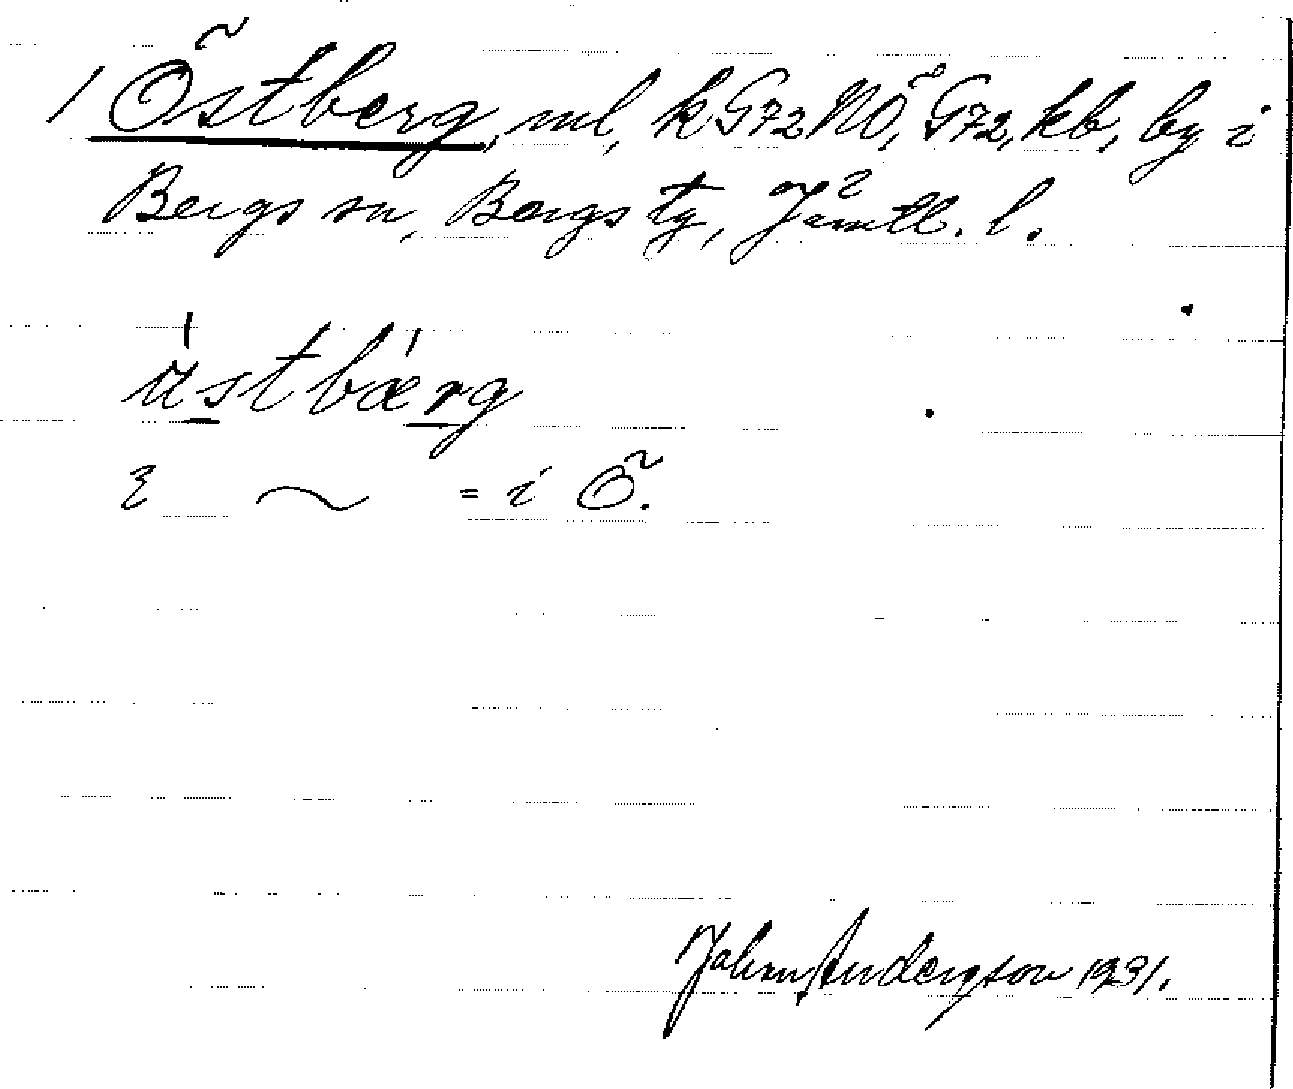 1 Östberg, ml, k G72 NÖ, G72, kb, by i
Bergs sn, Bergs tg, Jämtl. l.
ústbǽrg
ε ~ = i Ö.
Johan Anderson 1931.